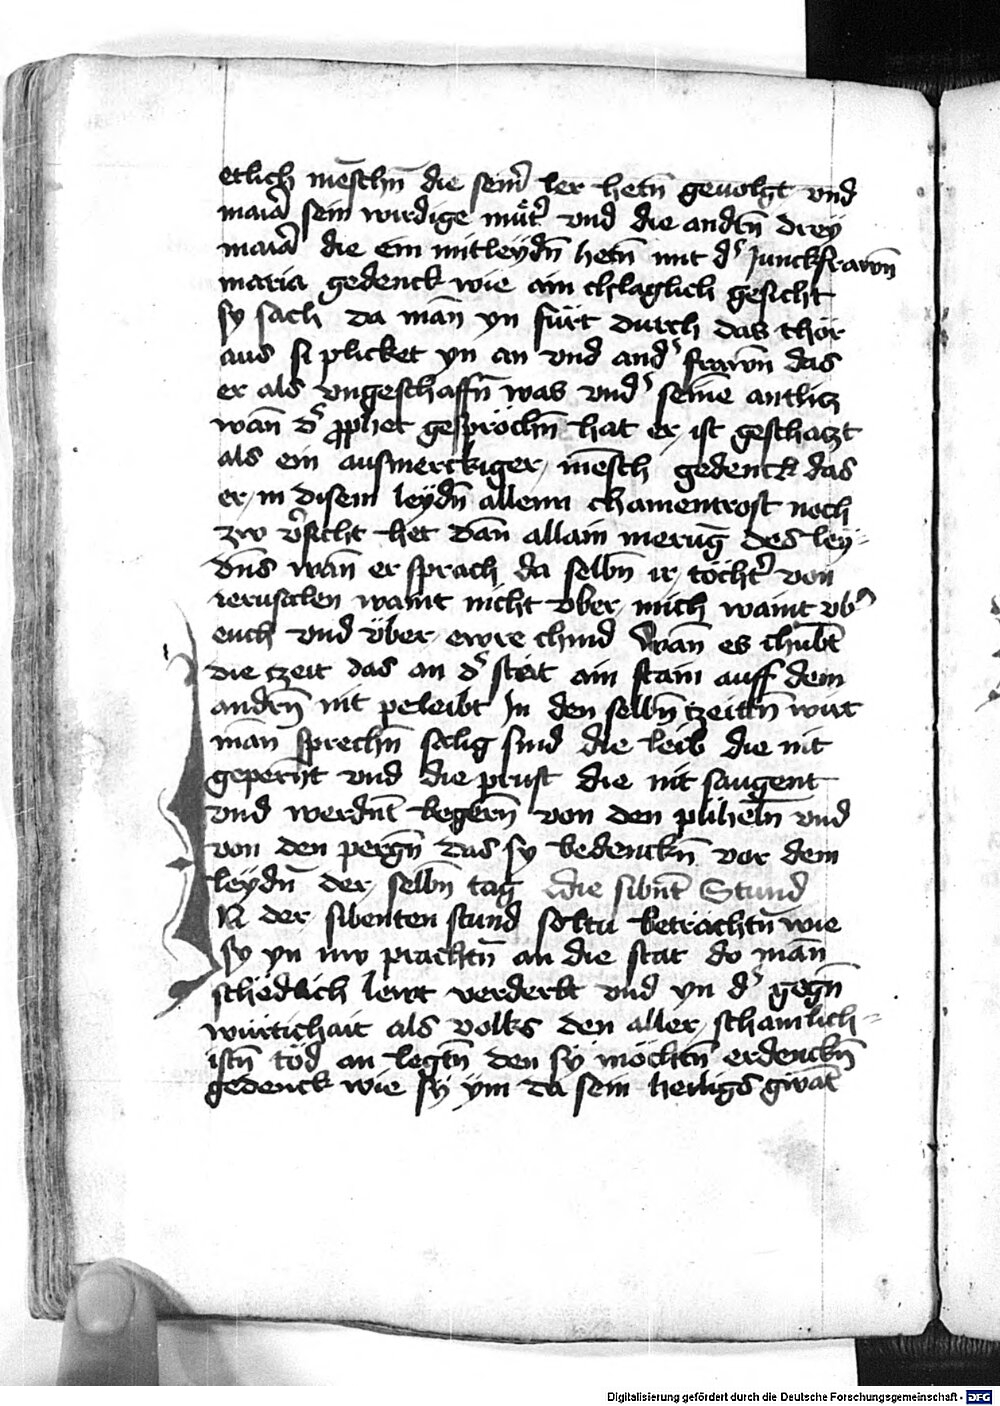 etlich mēschn̄ die sein̄ ler hetn̄ geuolgt vnd
maiā sein wirdige mūt̄ vnd die andn̄ drey
maiā die ein mitleydn̄ hetn̄ mit d' Junckfrawn̄
maria gedenck wie ain chlaglich gesicht
sy sach da mān yn fürt durch das thor
aus si plicket yn an vnd and' frawn̄ das
er als vngeschaffn̄ was vnd' seine antlicz
wān d' pphet gesprochn̄ hat er ist geschaczt
als ein ausmerckiger mēsch gedenck das
er in disem leydn̄ allenn chainentrost noch
zw v̄sicht het dān allain merūg des ley=
dn̄s wān er sprach da selbn̄ ir tocht̄ von
ierusalen waint nicht vber mich waint vb'
euch vnd über ewre chind wān es chūbt
die zeit das an d' stat ain stain auff dem
andrn̄ nit peleibt In den selbn̄ zeittn̄ wirt
mān sprechn̄ salig sind die leib die nit
gepern̄t vnd die prust die nit saugent
vnd werdn̄t begern̄ von den püheln̄ vnd
von den pergn̄ das sy bedenckn̄ vor dem
leydn̄ der selbn̄ tag die sibn̄t Stund
IN der sibenten stund soltu betrachtn̄ wie
sy yn nw prachtn̄ an die stat do mān
schedlich lewt verderbt vnd yn d' gegn̄
würtichait als volks den aller schamlich=
istn̄ tod an legtn̄ den sy möchtn̄ erdenckn̄
gedenck wie sy ym da sein heiligs gwāt
Digitalisierung gefördert durch die Deutsche Forschungsgemeinschaft - DFG